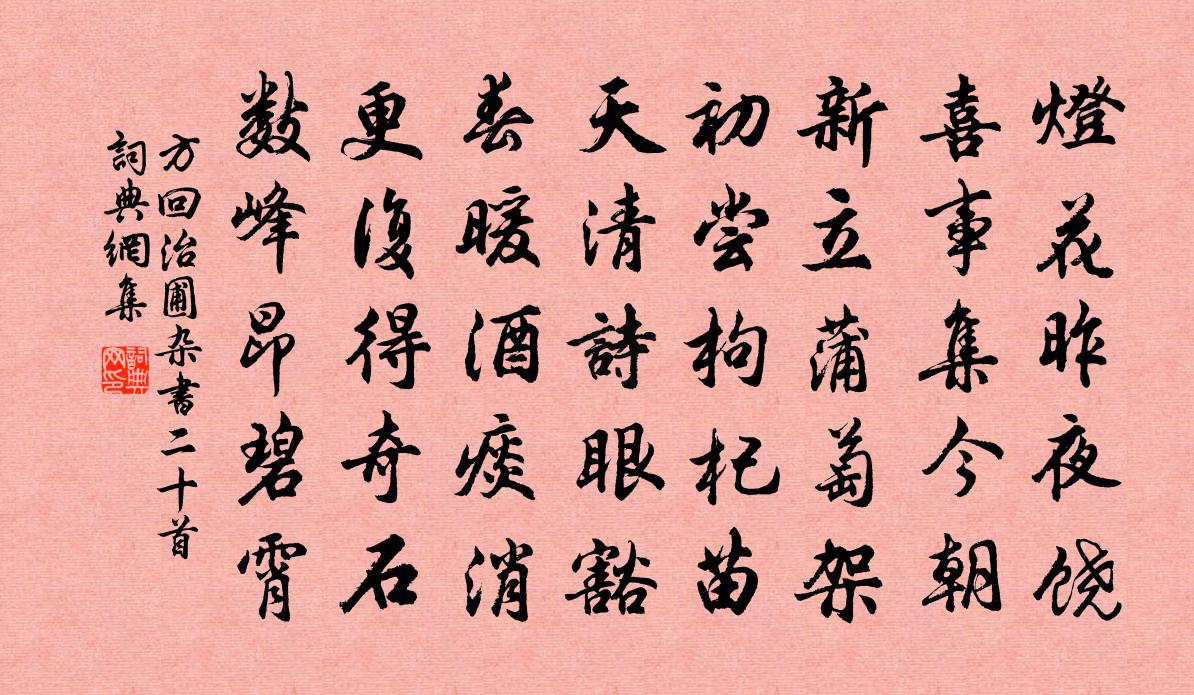 燈花昨夜饶
喜事集今朝
新立蒲萄架
初尝枸杞苗
天清詩眼豁
春暖酒痰消
更復得奇石
数峰昂碧霄
方回治圃杂書二十首
詞典網集
詞典网印